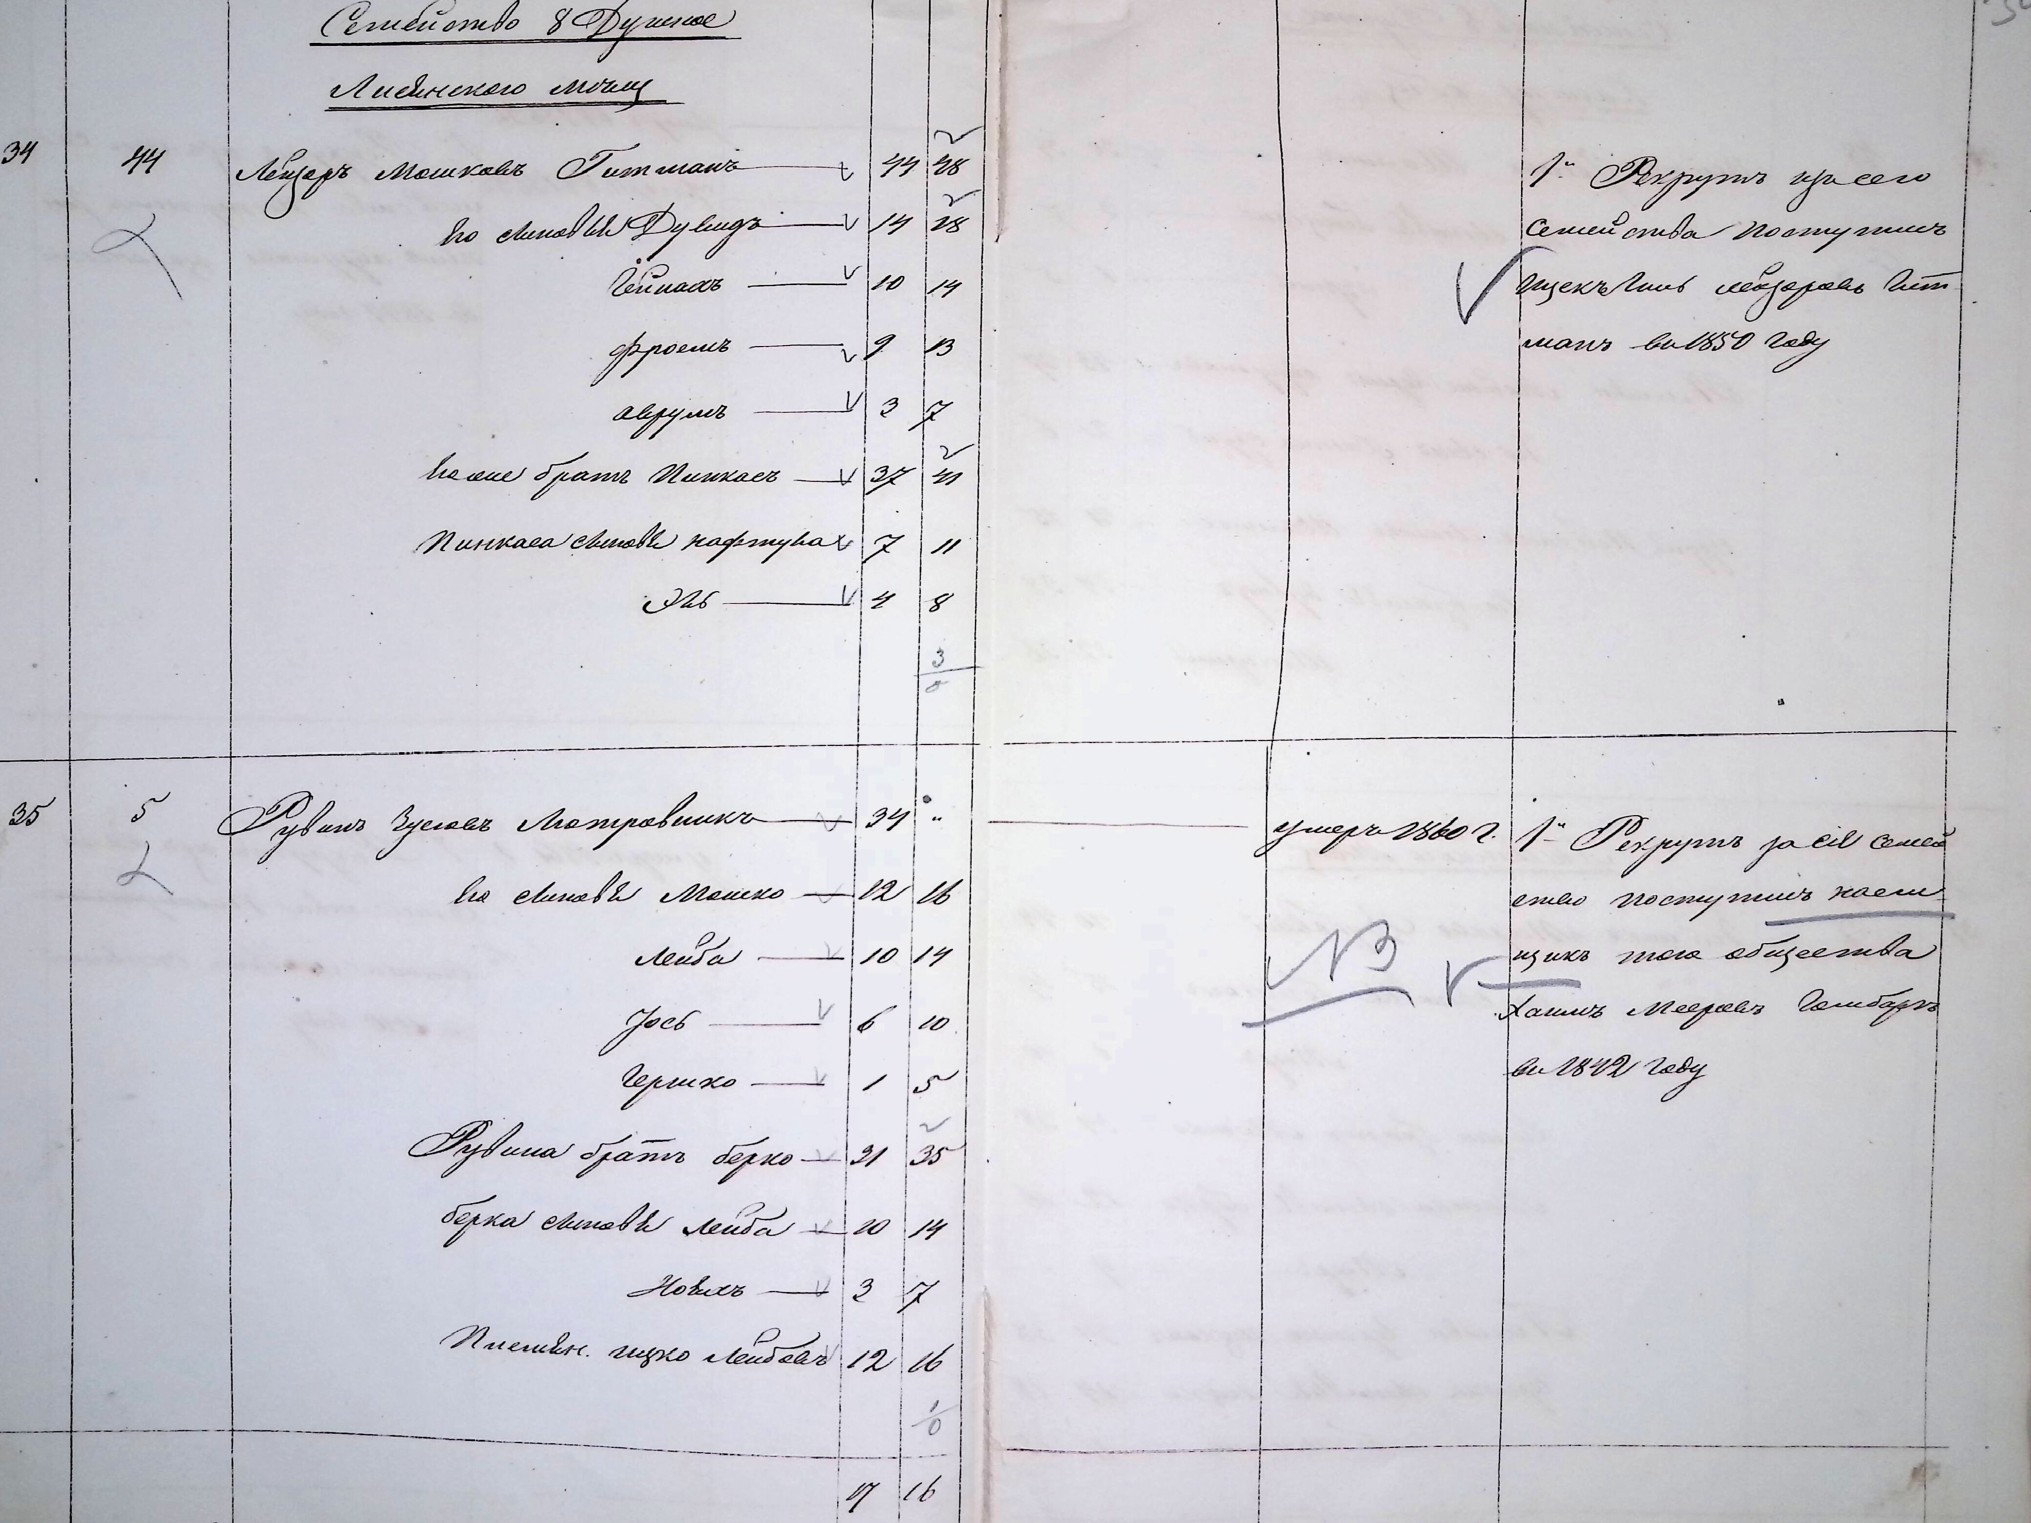 Семейство 8 Душное
34 44 Лейзеръ Мошковъ Гитманъ 44 48
Его сыновья Дувидъ 14 18
10 14
Фроемъ 9 13
Аврумъ 3 7
Его же братъ Пинкасъ 37 41
Пинкаса сыновья Нафтула 7 11
Эль 4 8
3
1й Рекрутъ изъ сего
Семейства поступилъ
Лейзеровъ Гит
манъ въ 1850 году
35 5 Рувинъ 34 "
Его сыновья Мошко 12 16
Лейба 10 14
Іось 6 10
Гершко 1 5
Рувина братъ Берко 31 35
Берка сыновья Лейба 10 14
3 7
Племян. Ицко Лейбовъ 12 16
1
0
17 16
умеръ 1860 г.
NB
1й Рекрутъ за сіе семей
ство поступилъ наем
щикъ того общества
Хаимъ Мееровъ
въ 1842 году